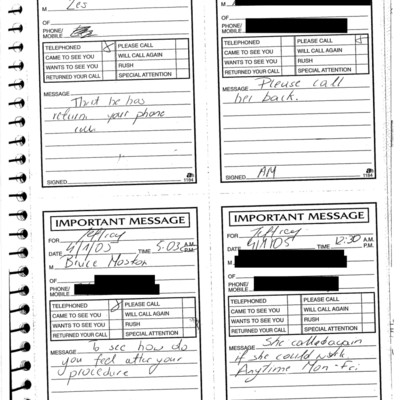 M Les
OF
PHONE/
MOBILE
TELEPHONED PLEASE CALL
CAME TO SEE YOU WILL CALL AGAIN
WANTS TO SEE YOU RUSH
RETURNED YOUR CALL SPECIAL ATTENTION
MESSAGE
That he has
return your phone
call
SIGNED 1184
M
OF
PHONE/
MOBILE
TELEPHONED PLEASE CALL
CAME TO SEE YOU WILL CALL AGAIN
WANTS TO SEE YOU RUSH
RETURNED YOUR CALL SPECIAL ATTENTION
MESSAGE Please call
her back.
AM
SIGNED 1184
IMPORTANT MESSAGE
FOR Jeffrey
DATE TIME 5:03 A.M. P.M.
M Bruce
OF
PHONE/
MOBILE
TELEPHONED PLEASE CALL
CAME TO SEE YOU WILL CALL AGAIN
WANTS TO SEE YOU RUSH
RETURNED YOUR CALL SPECIAL ATTENTION
MESSAGE To see how do
you feel after your
procedure
IMPORTANT MESSAGE
FOR Jeffrey
DATE TIME 12:30 A.M. P.M.
M
OF
PHONE/
MOBILE
TELEPHONED PLEASE CALL
CAME TO SEE YOU WILL CALL AGAIN
WANTS TO SEE YOU RUSH
RETURNED YOUR CALL SPECIAL ATTENTION
MESSAGE She called again
if she could work
Anytime Mon-Fri